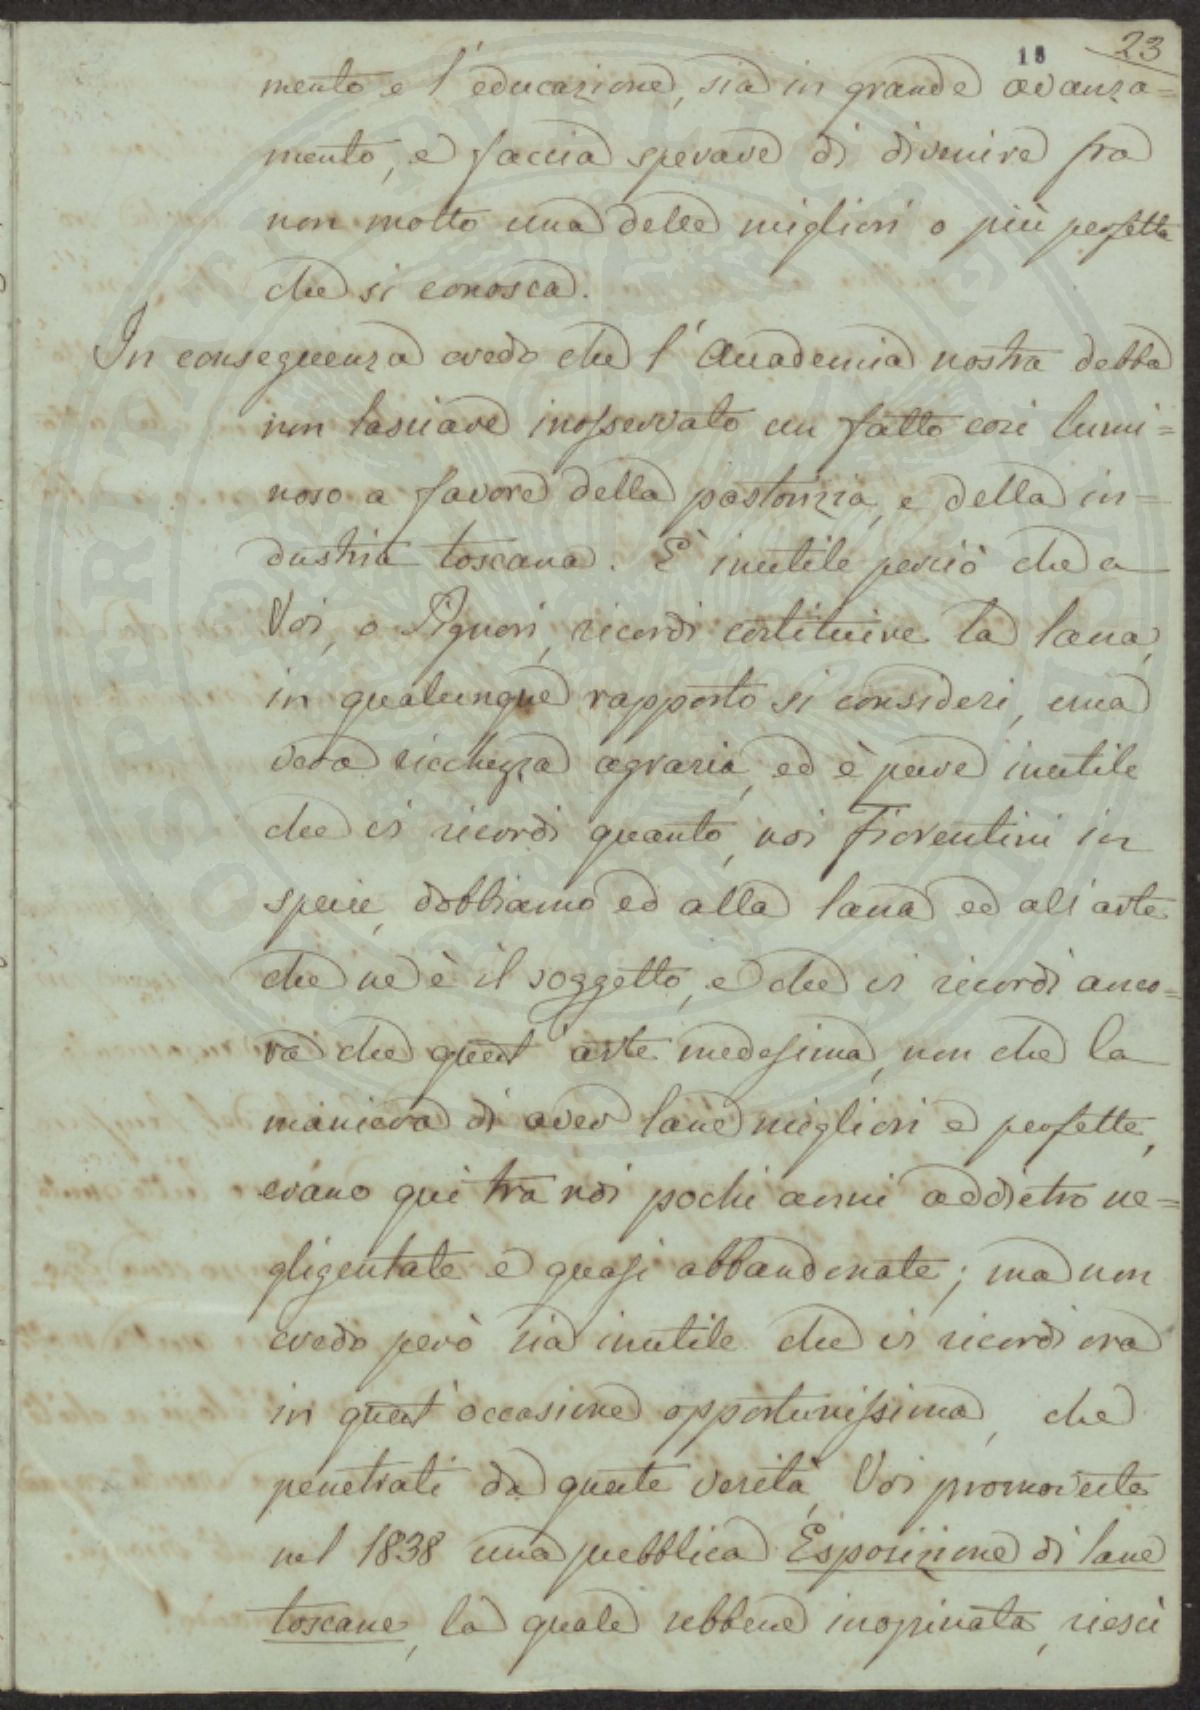 18 23
mento e l'educazione, sia in grande avanza=
mento, e faccia sperare di divenire fra
non molto una delle migliori o più perfette
che si conosca.
In conseguenza credo che l'Accademia nostra debba
non lasciare inosservato un fatto così lumi=
noso a favore della pastorizia, e della in=
dustria toscana. È inutile perciò che a
Voi, o Signori, ricordi costituire la lana,
in qualunque rapporto si consideri, una
vera ricchezza agraria, ed è pure inutile
che vi ricordi quanto, noi Fiorentini in
specie, dobbiamo ed alla lana ed all'arte
che ne è il soggetto, e che vi ricordi anco=
ra che quest'arte medesima, non che la
maniera di aver lane migliori e perfette,
erano quì tra noi pochi anni addietro ne=
gligentate e quasi abbandonate; ma non
credo però sia inutile che vi ricordi ora
in quest'occasione opportunissima, che
penetrati da queste verità, Voi promoveste
nel 1838 una pubblica Esposizione di lane
toscane, la quale sebbene inopinata, riescì
PERITI PUBLICAE